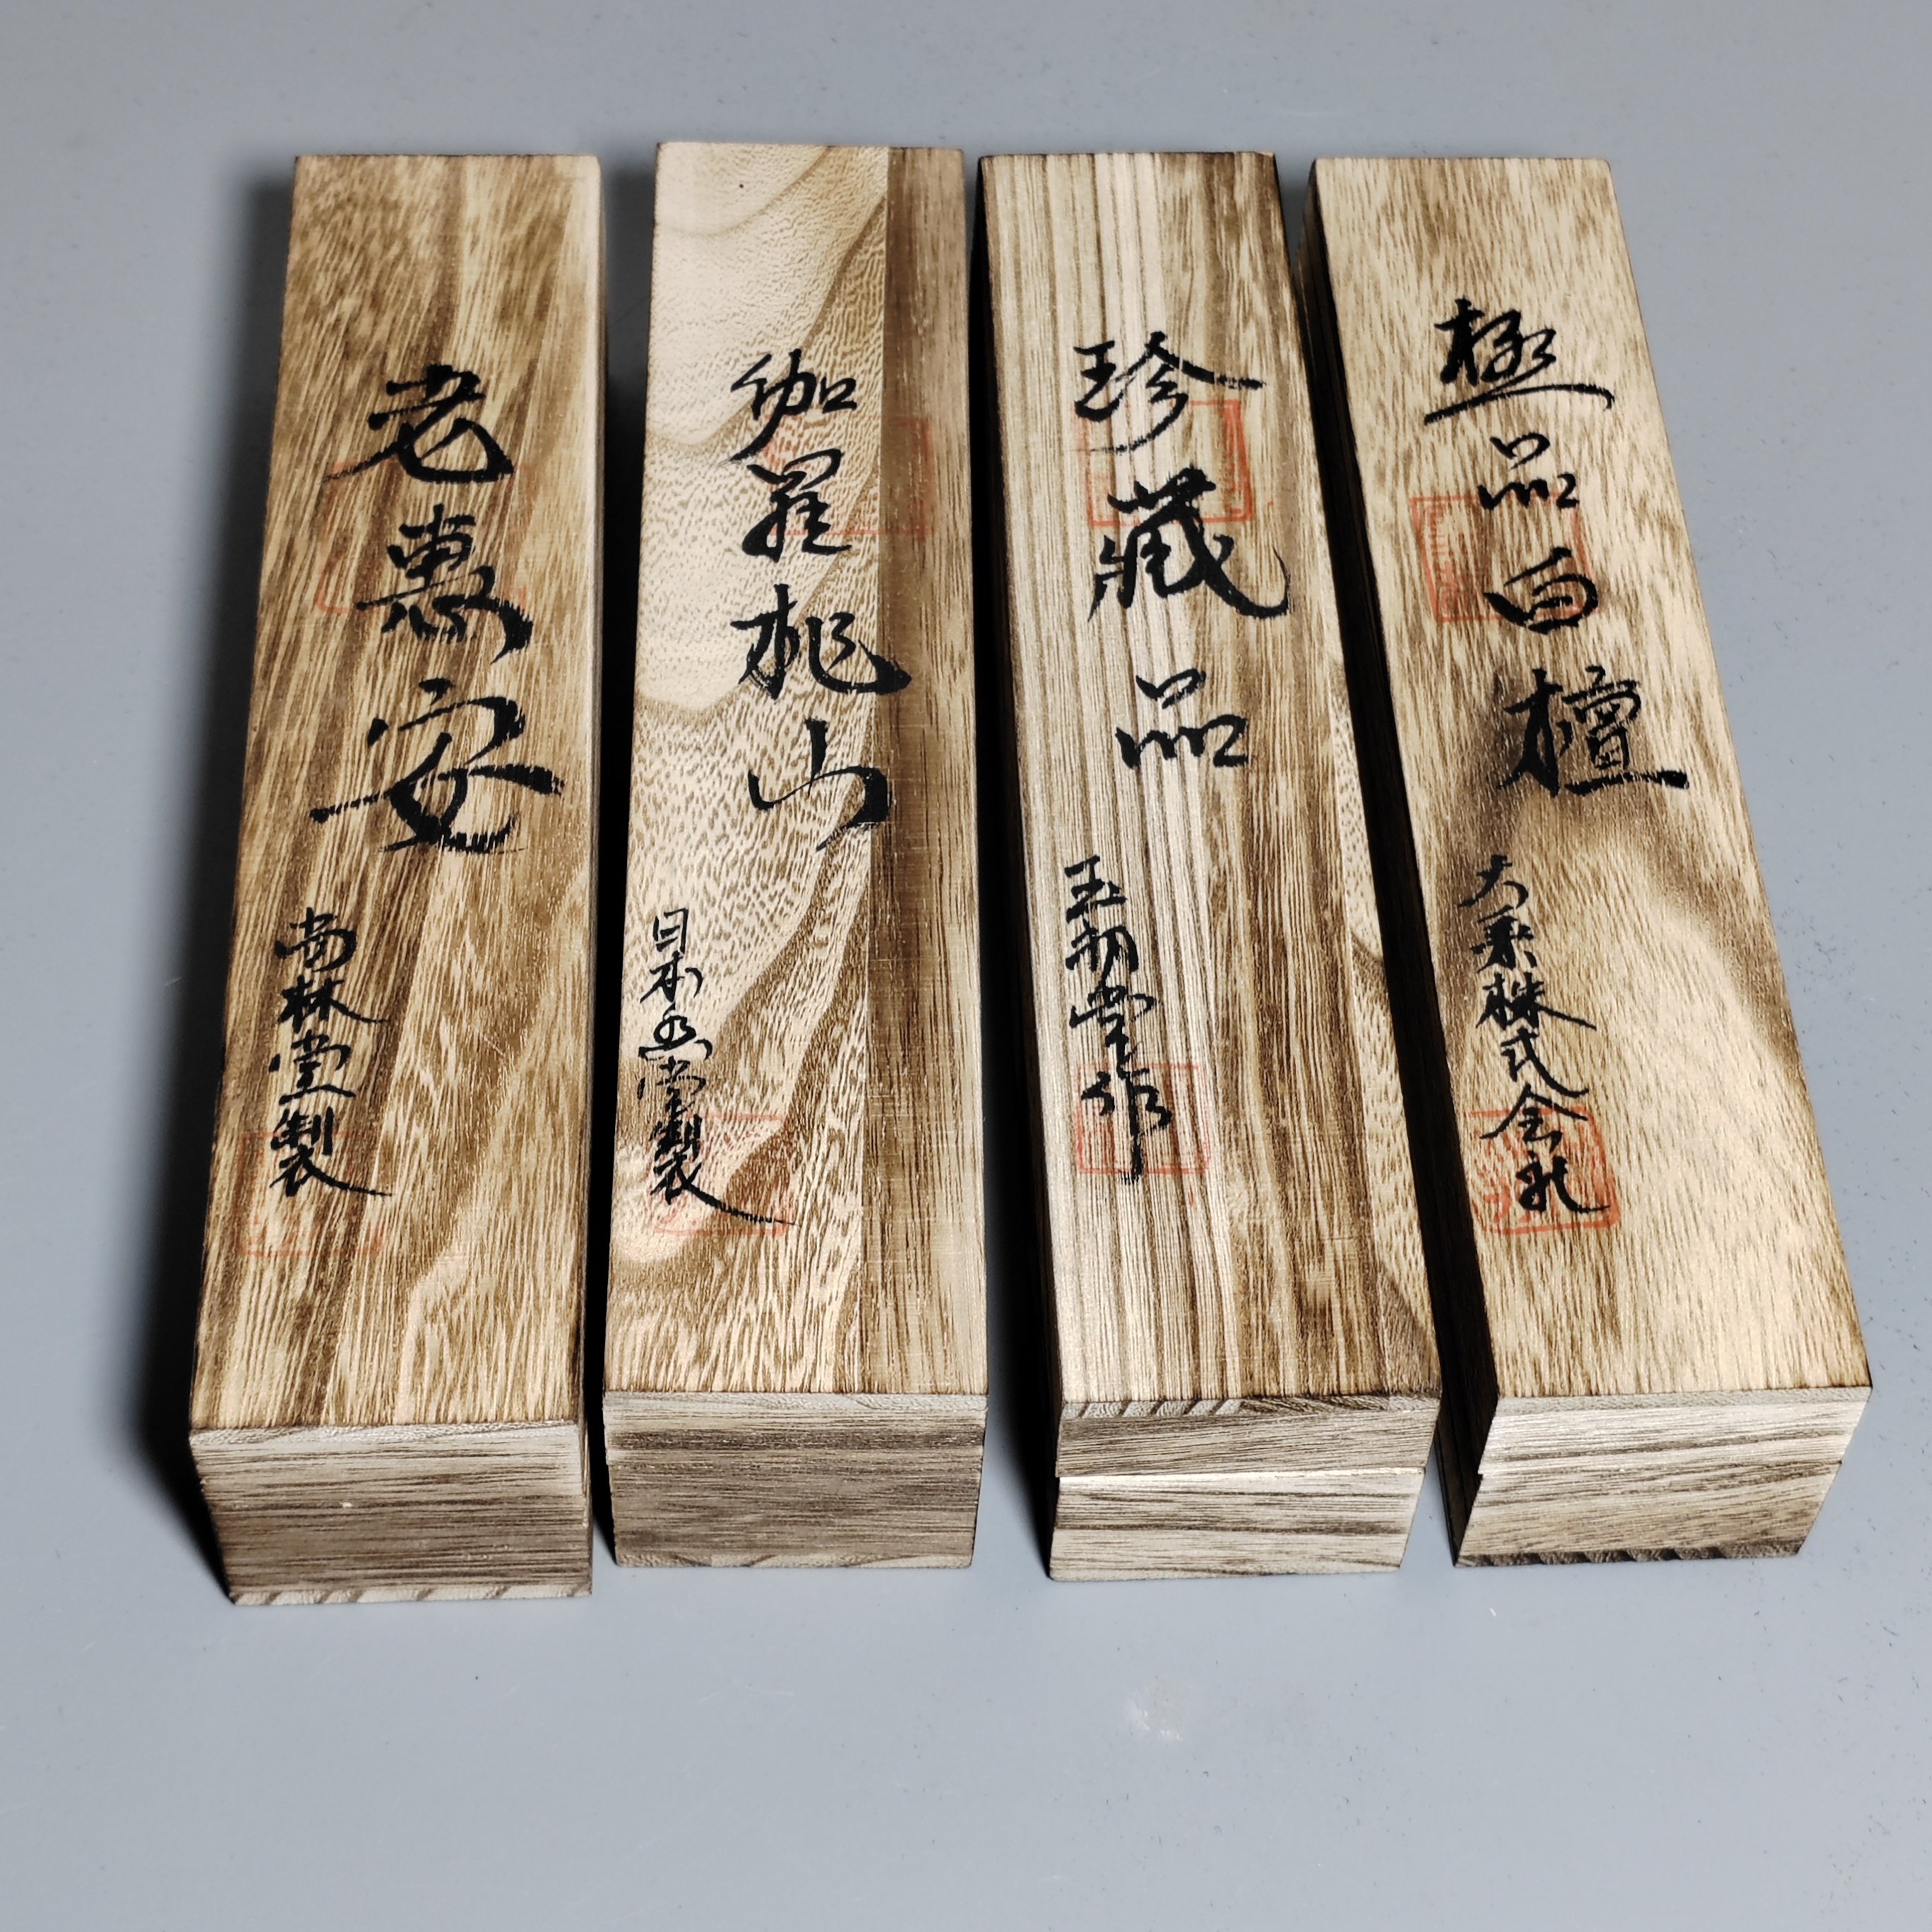 老惠安
尚林堂製
伽羅桃山
日本香堂製
珍藏品
玉初堂作
極品白檀
大系株式会社